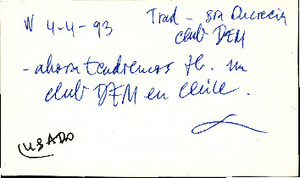 W 4-4-93 Trad - Sra Lucrecia
club DFM
- ahora tendremos tb. un
club DFM en Chile.
USADO